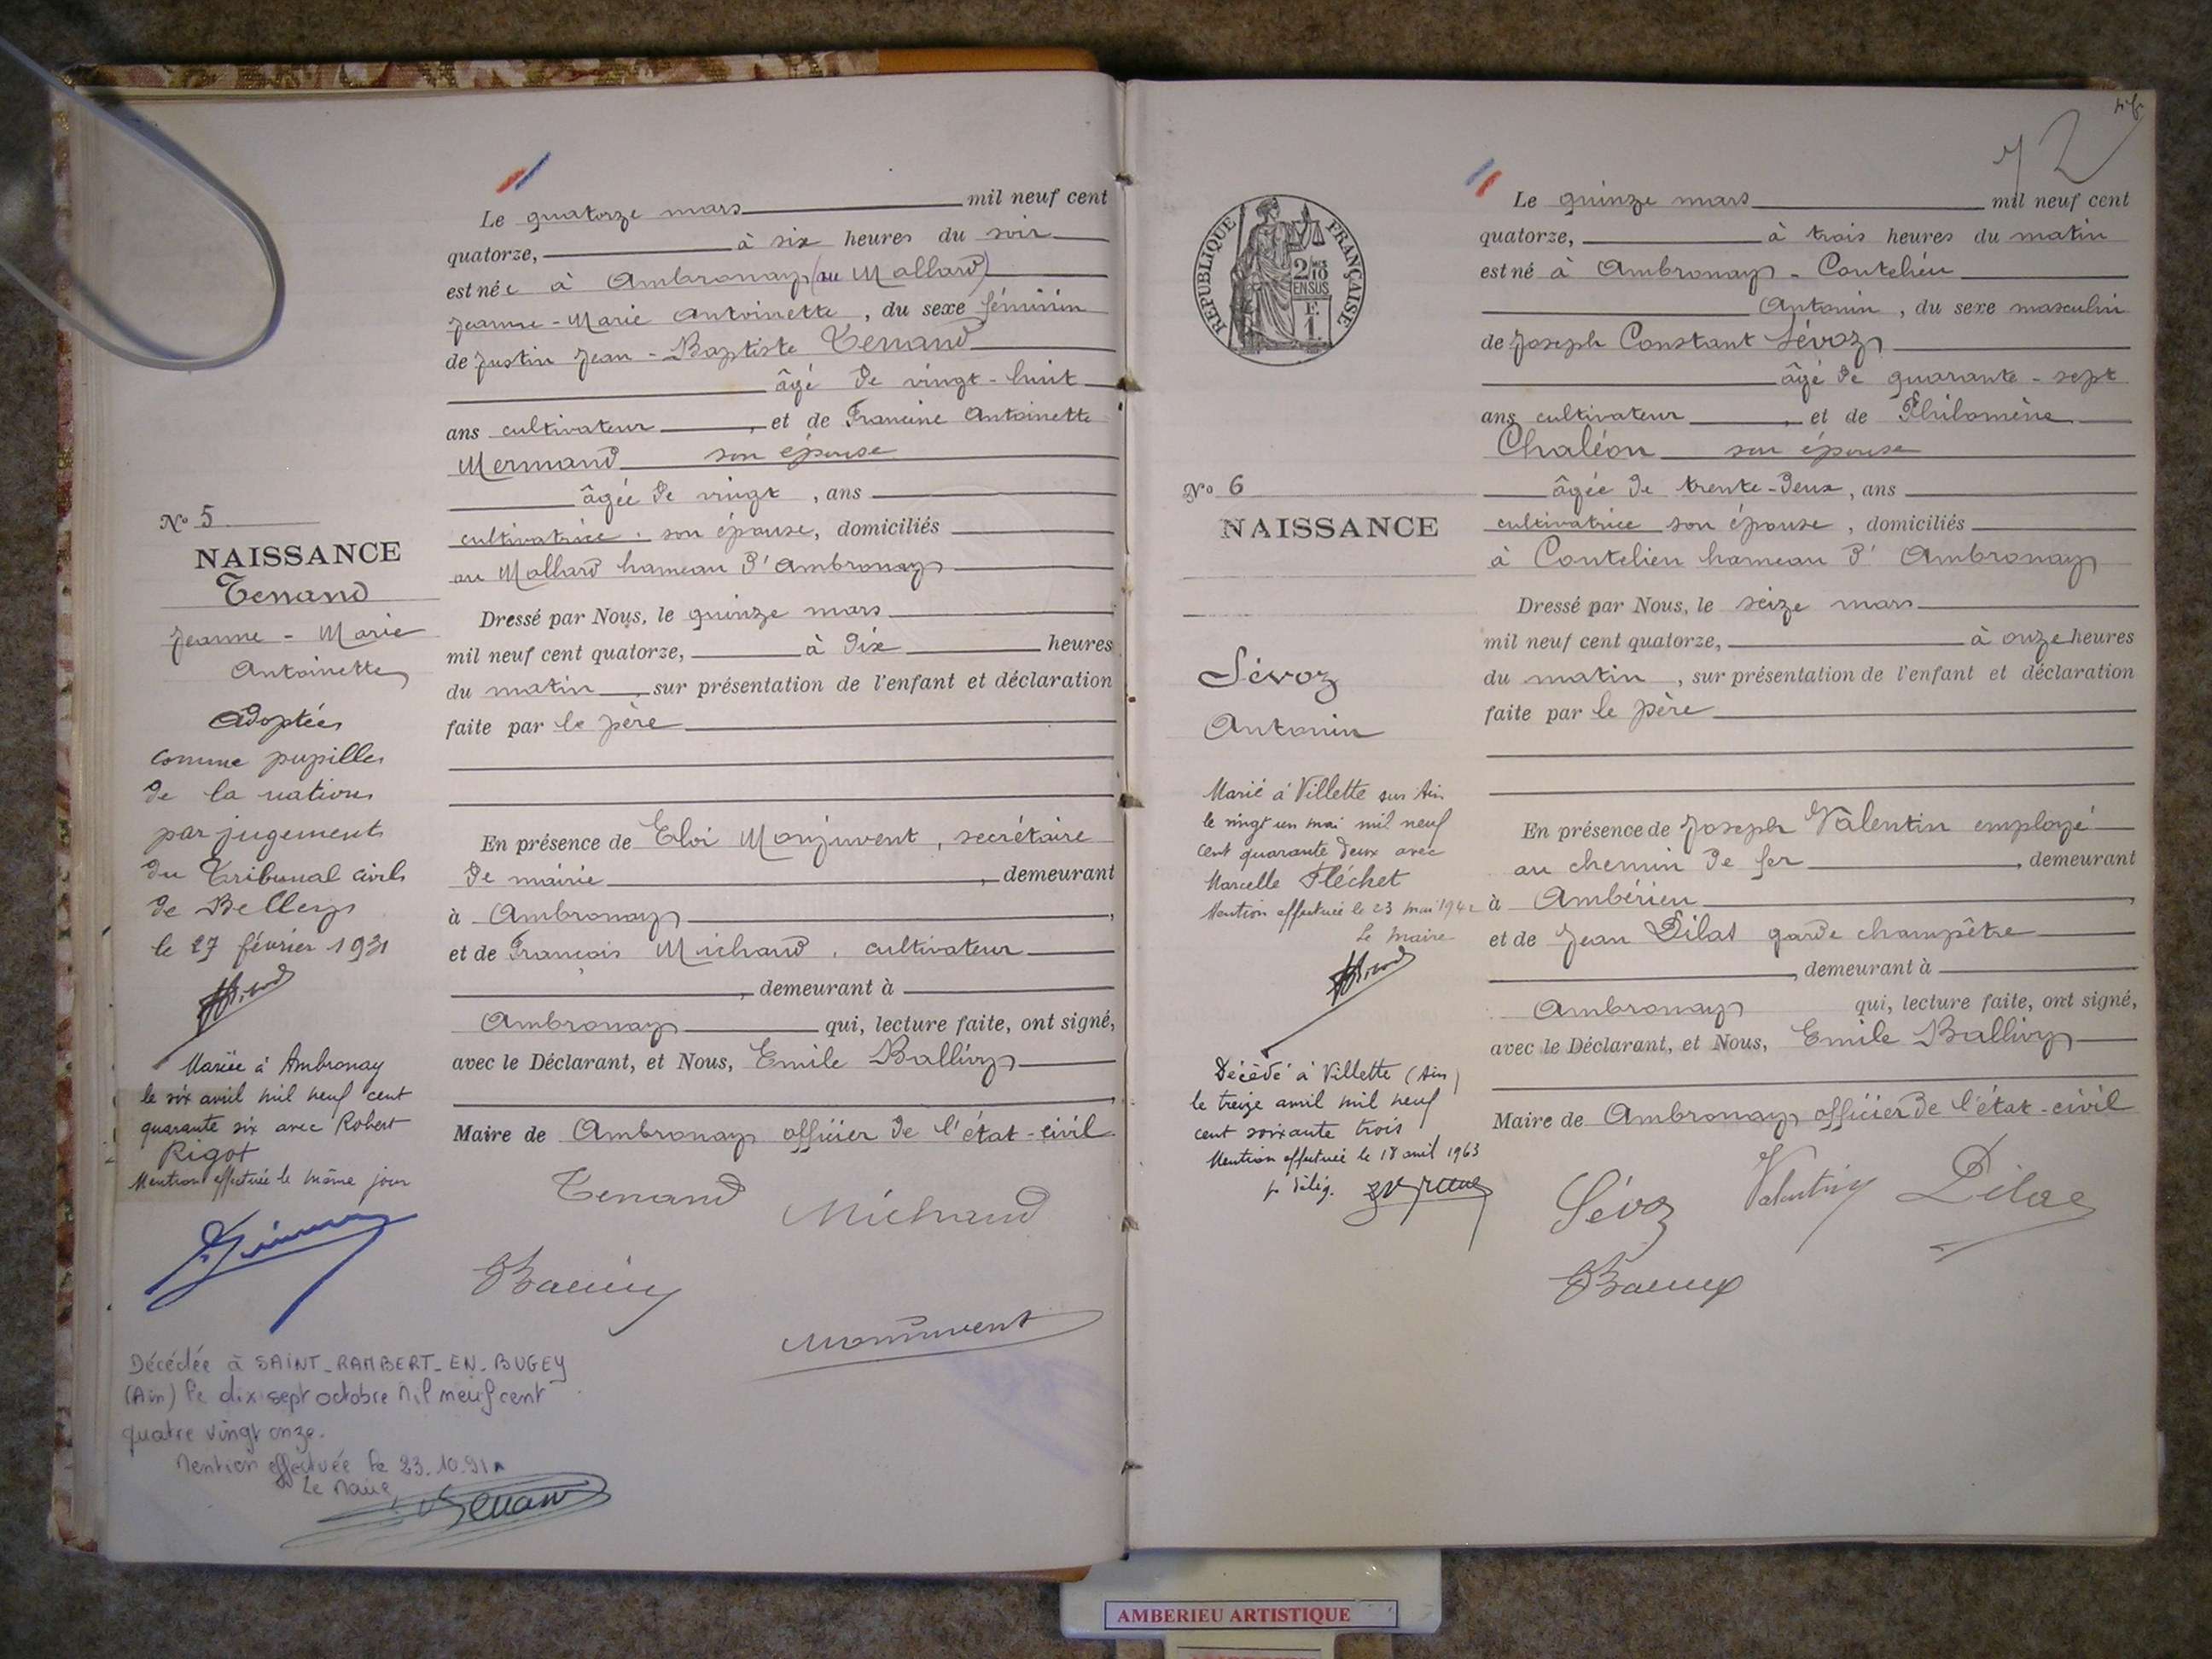 Le quatorze mars mil neuf cent
quatorze, à six heures du soir
est née à Ambronay (au Mollard)
Jeanne-Marie Antoinette, du sexe féminin
de Justin Jean-Baptiste Tenand
âgé de vingt-huit
ans cultivateur, et de Francine Antoinette
Mermand son épouse
âgée de vingt, ans
cultivatrice. son épouse, domiciliés
au Mollard hameau d'Ambronay
Dressé par Nous, le quinze mars
mil neuf cent quatorze, à dix heures
du matin, sur présentation de l'enfant et déclaration
faite par le père
En présence de Eloi Monjuvent, secrétaire
de mairie, demeurant
à Ambronay,
et de François Michaud, cultivateur
, demeurant à
Ambronay qui, lecture faite, ont signé,
avec le Déclarant, et Nous, Emile Ballivy
Maire de Ambronay officier de l'état-civil
Tenand Michaud
Monjuvent
No 5
NAISSANCE
Tenand
Jeanne-Marie
Antoinette
Adoptée
comme pupille
de la nation
par jugement
du Tribunal civil
de Belley
le 27 février 1931
Mariée à Ambronay
le six avril mil neuf cent
quarante six avec Robert
Rigot
Mention effectuée le même jour
Décédée à SAINT-RAMBERT-EN-BUGEY
(Ain) le dix sept octobre mil neuf cent
quatre vingt onze.
Mention effectuée le 23.10.91
Le Maire,
72
RÉPUBLIQUE FRANÇAISE
2/10
EN SUS
E.
1.
Le quinze mars mil neuf cent
quatorze, à trois heures du matin
est né à Ambronay - Coutelieu
Antonin, du sexe masculin
de Joseph Constant Sévoz
âgé de quarante-sept
ans cultivateur, et de Philomène
Chaléon son épouse
âgée de trente-deux, ans
cultivatrice son épouse, domiciliés
à Coutelieu hameau d'Ambronay
Dressé par Nous, le seize mars
mil neuf cent quatorze, à onze heures
du matin, sur présentation de l'enfant et déclaration
faite par le père
En présence de Joseph Valentin employé
au chemin de fer, demeurant
à Ambérieu,
et de Jean Pilat garde champêtre
, demeurant à
Ambronay qui, lecture faite, ont signé,
avec le Déclarant, et Nous, Emile Ballivy
Maire de Ambronay officier de l'état-civil
Sévoz Valentin Pilat
No 6
NAISSANCE
Sévoz
Antonin
Marié à Villette sur Ain
le vingt un mai mil neuf
cent quarante deux avec
Marcelle Fléchet
Mention effectuée le 23 mai 1942
Le maire
Décédé à Villette (Ain)
le treize avril mil neuf
cent soixante trois
Mention effectuée le 18 avril 1963
pr délég.
AMBERIEU ARTISTIQUE